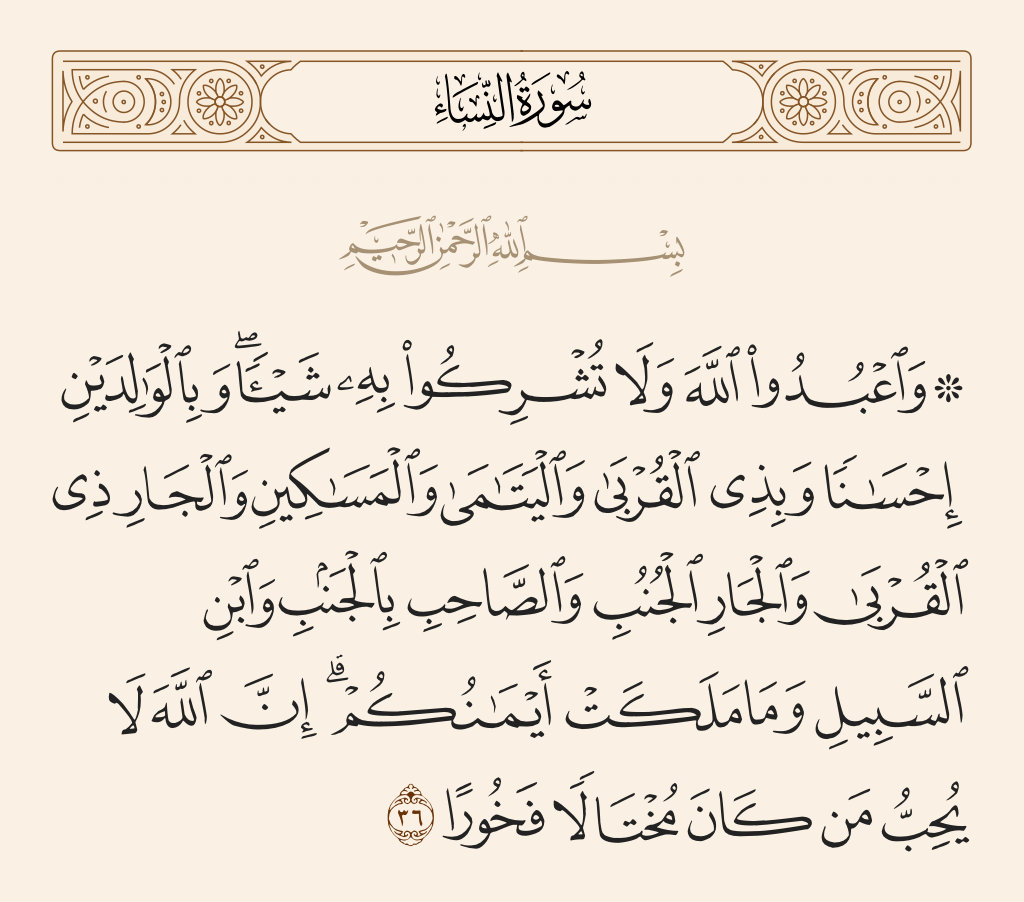 سُورَةُ النِّسَاءِ
بِسْمِ ٱللَّهِ ٱلرَّحْمَٰنِ ٱلرَّحِيمِ
۞ وَٱعْبُدُوا۟ ٱللَّهَ وَلَا تُشْرِكُوا۟ بِهِۦ شَيْـًٔا ۖ وَبِٱلْوَٰلِدَيْنِ
إِحْسَـٰنًا وَبِذِى ٱلْقُرْبَىٰ وَٱلْيَتَـٰمَىٰ وَٱلْمَسَـٰكِينِ وَٱلْجَارِ ذِى
ٱلْقُرْبَىٰ وَٱلْجَارِ ٱلْجُنُبِ وَٱلصَّاحِبِ بِٱلْجَنۢبِ وَٱبْنِ
ٱلسَّبِيلِ وَمَا مَلَكَتْ أَيْمَـٰنُكُمْ ۗ إِنَّ ٱللَّهَ لَا
يُحِبُّ مَن كَانَ مُخْتَالًا فَخُورًا ٣٦